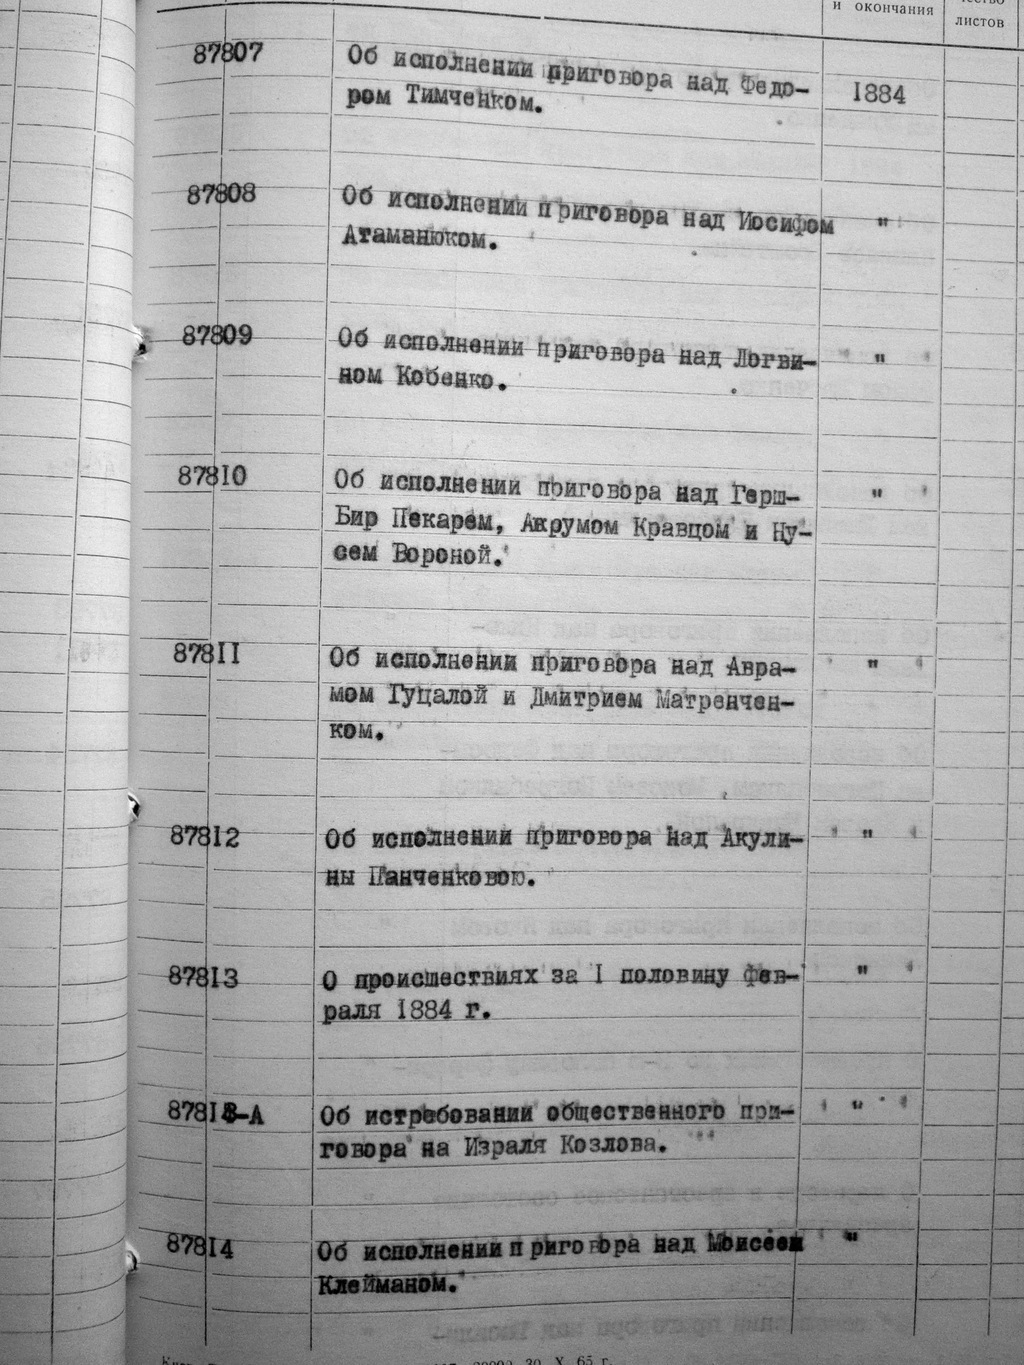 и окончания
листов
87807 Об исполнении приговора над Федо- 1884
ром Тимченком.
87808 Об исполнении приговора над Иосифом "
Атаманюком.
87809 Об исполнении приговора над Логви- "
ном Кобенко.
87810 Об исполнении приговора над Герш- "
Бир Пекарем, Акрумом Кравцом и Ну-
сем Вороной.
87811 Об исполнении приговора над Авра- "
мом Гуцалой и Дмитрием Матренчен-
ком.
87812 Об исполнении приговора над Акули- "
ны Панченковою.
87813 О происшествиях за I половину фев- "
раля 1884 г.
87813-А Об истребовании общественного при- "
говора на Израля Козлова.
87814 Об исполнении приговора над Моисеем "
Клейманом.
30 X 65 г.